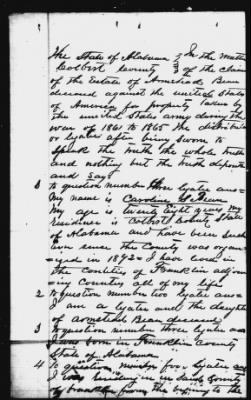 The State of Alabama } In the matter
Colbert County } of the claim
of the Estate of Armstead Bean
deceased against the united States
of America for property taken by
the united States army during the
war of 1861 to 1865 The
or after being sworn to
speak the truth the whole truth
and nothing but the truth deposes
and says
1 to question number three
My name is Caroline
My age is twenty Eight years my
residence is Colbert County State
of Alabama and have been such
ever since this County was organ
-ized in 1872 I have lived in
the Counties of Franklin adjoin
ing Counties all of my life
2 to question number two
I am a and the daughter
of Armstead Bean deceased
3 to question number three
I was born in Franklin County
State of Alabama
4 to question number four
I was residing in in said County
of Franklin from the beginning to the